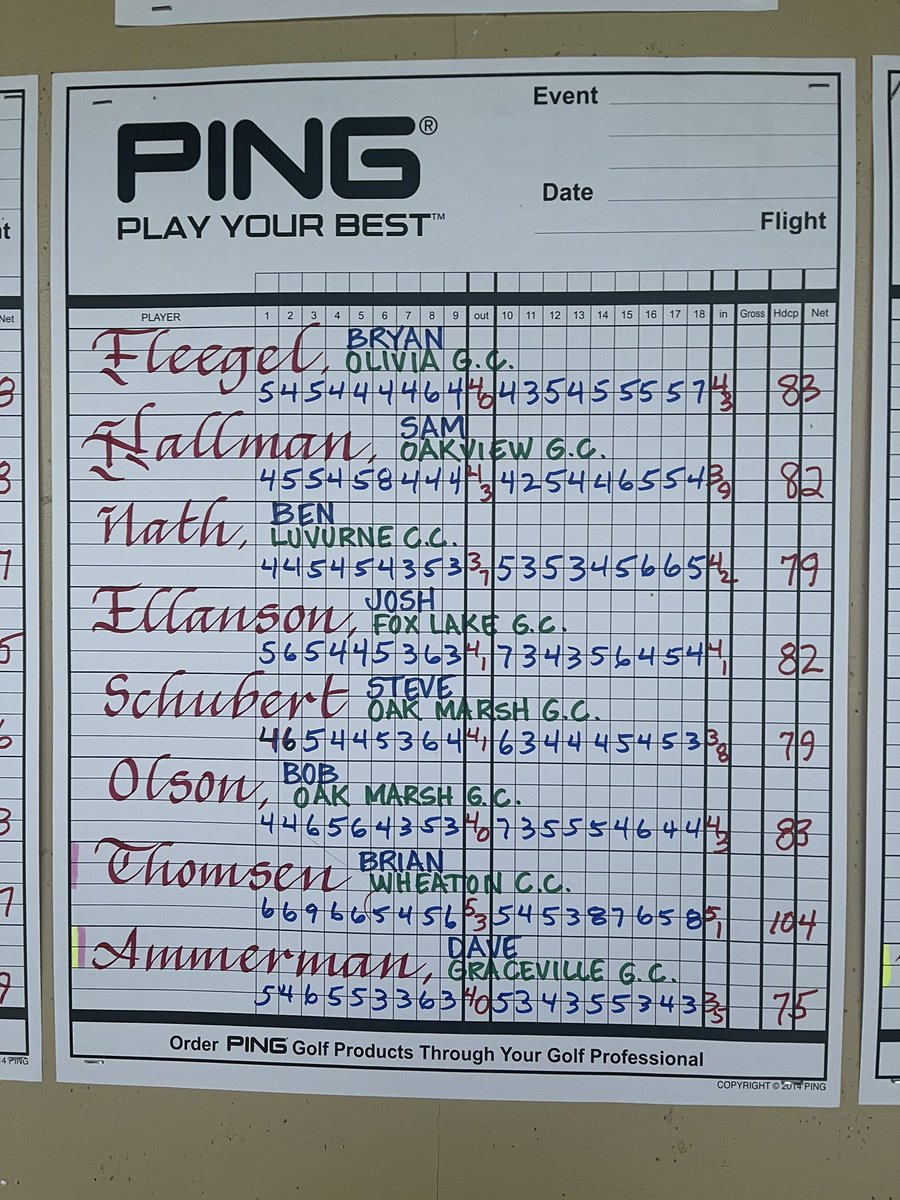 PING®
PLAY YOUR BEST™
Event
Date
Flight
PLAYER 1 2 3 4 5 6 7 8 9 out 10 11 12 13 14 15 16 17 18 in Gross Hdcp Net
Fleegel, BRYAN
OLIVIA G.C.
5 4 5 4 4 4 4 6 4 40 4 3 5 4 5 5 5 5 7 43 83
Hallman, SAM
OAKVIEW G.C.
4 5 5 4 5 8 4 4 4 43 4 2 5 4 4 6 5 5 4 39 82
Nath, BEN
LUVURNE C.C.
4 4 5 4 5 4 3 5 3 37 5 3 5 3 4 5 6 6 5 42 79
Ellanson, JOSH
FOX LAKE G.C.
5 6 5 4 4 5 3 6 3 41 7 3 4 3 5 6 4 5 4 41 82
Schubert STEVE
OAK MARSH G.C.
4 6 5 4 4 5 3 6 4 41 6 3 4 4 4 5 4 5 3 38 79
Olson, BOB
OAK MARSH G.C.
4 4 6 5 6 4 3 5 3 40 7 3 5 5 5 4 6 4 4 43 83
Thomsen BRIAN
WHEATON C.C.
6 6 9 6 6 5 4 5 6 53 5 4 5 3 8 7 6 5 8 51 104
Ammerman, DAVE
GRACEVILLE G.C.
5 4 6 5 5 3 3 6 3 40 5 3 4 3 5 5 3 4 3 35 75
Order PING Golf Products Through Your Golf Professional
COPYRIGHT © 2014 PING
Net
4 PING